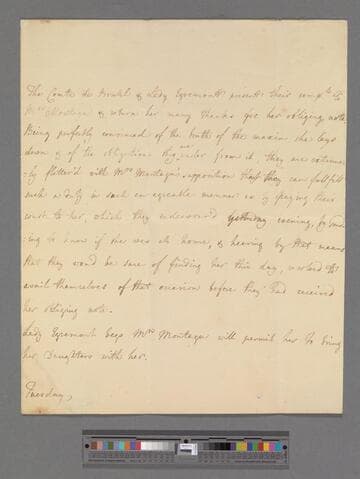 The Comte de Bruhl & Lady Egremont present their comp.ts to
Mrs Montagu & return her many thanks for her obliging note
Being perfectly convinced of the truth of the maxim she lays
down & of the obligation they are under from it, they are extreme
-ly flatter'd with Mrs Montagu's supposition that they can fullfill
such a duty in such an agreable manner as by paying their
visit to her, which they endeavour'd yesterday evening, by send
-ing to know if she was at home, & hearing by that means
that they would be sure of finding her this day, wished to
avail themselves of that occasion before they had received
her obliging note.
Lady Egremont begs Mrs Montagu will permit her to bring
her Daughters with her.
Tuesday,